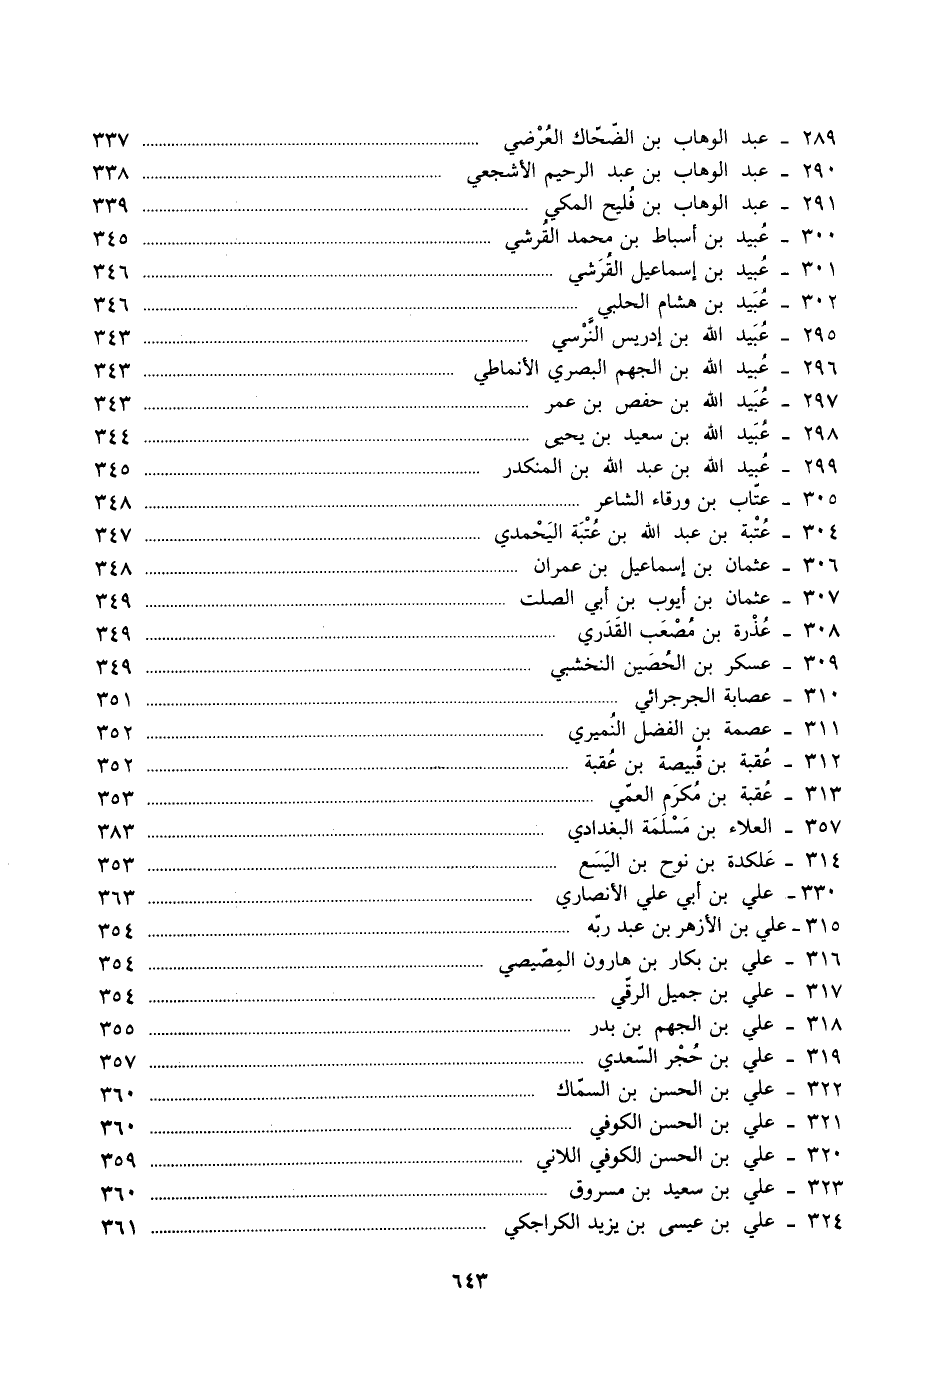 ٢٨٩ ـ عبد الوهاب بن الضّحّاك العُرْضي ........ ٣٣٧
٢٩٠ ـ عبد الوهاب بن عبد الرحيم الأشجعي ........ ٣٣٨
٢٩١ ـ عبد الوهاب بن فُليح المكي ........ ٣٣٩
٣٠٠ ـ عُبيد بن أسباط بن محمد القُرشي ........ ٣٤٥
٣٠١ ـ عُبيد بن إسماعيل القُرَشي ........ ٣٤٦
٣٠٢ ـ عُبَيد بن هشام الحلبي ........ ٣٤٦
٢٩٥ ـ عُبَيد الله بن إدريس النَّرْسي ........ ٣٤٣
٢٩٦ ـ عُبيد الله بن الجهم البصري الأنماطي ........ ٣٤٣
٢٩٧ ـ عُبَيد الله بن حفص بن عمر ........ ٣٤٣
٢٩٨ ـ عُبَيد الله بن سعيد بن يحيى ........ ٣٤٤
٢٩٩ ـ عُبيد الله بن عبد الله بن المنكدر ........ ٣٤٥
٣٠٥ ـ عتّاب بن ورقاء الشاعر ........ ٣٤٨
٣٠٤ ـ عُتْبة بن عبد الله بن عُتْبَة اليَحْمدي ........ ٣٤٧
٣٠٦ ـ عثمان بن إسماعيل بن عمران ........ ٣٤٨
٣٠٧ ـ عثمان بن أيوب بن أبي الصلت ........ ٣٤٩
٣٠٨ ـ عُذْرة بن مُصْعَب القَدَري ........ ٣٤٩
٣٠٩ ـ عسكر بن الحُصَين النخشبي ........ ٣٤٩
٣١٠ ـ عصابة الجرجرائي ........ ٣٥١
٣١١ ـ عصمة بن الفضل النُميري ........ ٣٥٢
٣١٢ ـ عُقبة بن قُبيصة بن عُقبة ........ ٣٥٢
٣١٣ ـ عُقبة بن مُكرَم العمّي ........ ٣٥٣
٣٥٧ ـ العلاء بن مَسْلَمَة البغدادي ........ ٣٨٣
٣١٤ ـ عَلكدة بن نوح بن اليَسَع ........ ٣٥٣
٣٣٠ـ علي بن أبي علي الأنصاري ........ ٣٦٣
٣١٥ ـ علي بن الأزهر بن عبد ربّه ........ ٣٥٤
٣١٦ ـ علي بن بكار بن هارون المِصّيصي ........ ٣٥٤
٣١٧ ـ علي بن جميل الرقّي ........ ٣٥٤
٣١٨ ـ علي بن الجهم بن بدر ........ ٣٥٥
٣١٩ ـ علي بن حُجْر السّعدي ........ ٣٥٧
٣٢٢ ـ علي بن الحسن بن السمّاك ........ ٣٦٠
٣٢١ ـ علي بن الحسن الكوفي ........ ٣٦٠
٣٢٠ ـ علي بن الحسن الكوفي اللاني ........ ٣٥٩
٣٢٣ ـ علي بن سعيد بن مسروق ........ ٣٦٠
٣٢٤ ـ علي بن عيسى بن يزيد الكراجكي ........ ٣٦١
٦٤٣